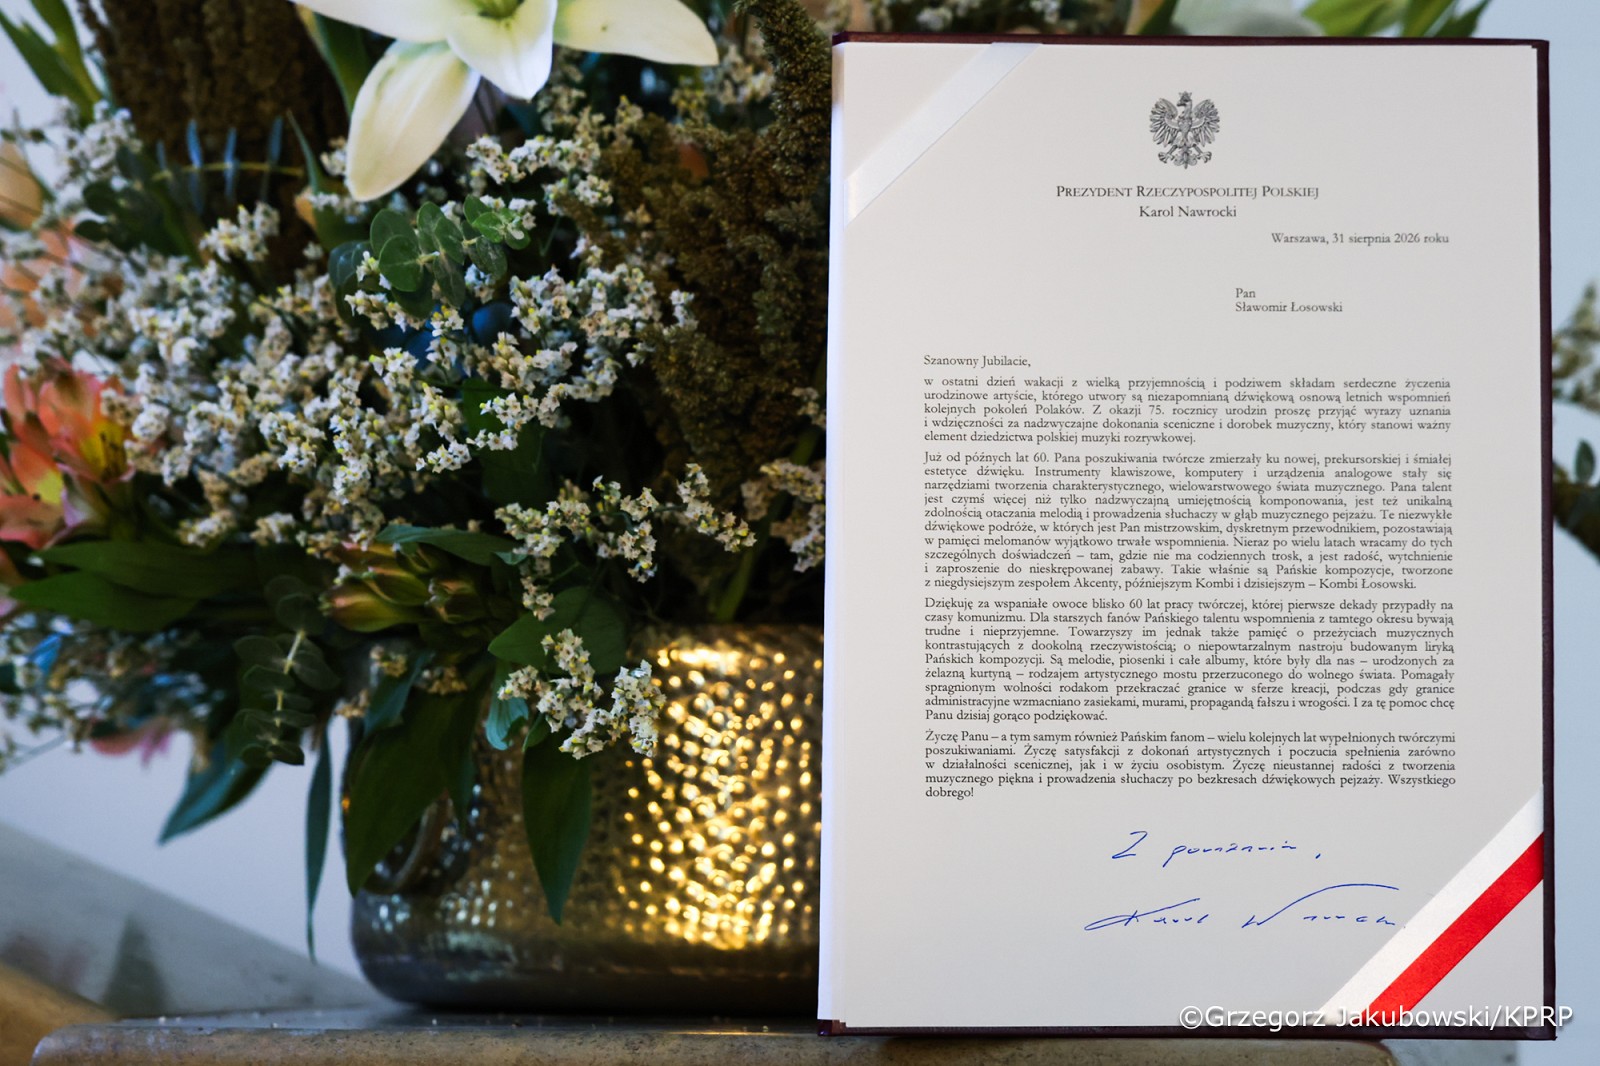 PREZYDENT RZECZYPOSPOLITEJ POLSKIEJ
Karol Nawrocki
Warszawa, 31 sierpnia 2026 roku
Pan
Sławomir Łosowski
Szanowny Jubilacie,
w ostatni dzień wakacji z wielką przyjemnością i podziwem składam serdeczne życzenia
urodzinowe artyście, którego utwory są niezapomnianą dźwiękową osnową letnich wspomnień
kolejnych pokoleń Polaków. Z okazji 75. rocznicy urodzin proszę przyjąć wyrazy uznania
i wdzięczności za nadzwyczajne dokonania sceniczne i dorobek muzyczny, który stanowi ważny
element dziedzictwa polskiej muzyki rozrywkowej.
Już od późnych lat 60. Pana poszukiwania twórcze zmierzały ku nowej, prekursorskiej i śmiałej
estetyce dźwięku. Instrumenty klawiszowe, komputery i urządzenia analogowe stały się
narzędziami tworzenia charakterystycznego, wielowarstwowego świata muzycznego. Pana talent
jest czymś więcej niż tylko nadzwyczajną umiejętnością komponowania, jest też unikalną
zdolnością otaczania melodią i prowadzenia słuchaczy w głąb muzycznego pejzażu. Te niezwykłe
dźwiękowe podróże, w których jest Pan mistrzowskim, dyskretnym przewodnikiem, pozostawiają
w pamięci melomanów wyjątkowo trwałe wspomnienia. Nieraz po wielu latach wracamy do tych
szczególnych doświadczeń – tam, gdzie nie ma codziennych trosk, a jest radość, wytchnienie
i zaproszenie do nieskrępowanej zabawy. Takie właśnie są Pańskie kompozycje, tworzone
z niegdysiejszym zespołem Akcenty, późniejszym Kombi i dzisiejszym – Kombi Łosowski.
Dziękuję za wspaniałe owoce blisko 60 lat pracy twórczej, której pierwsze dekady przypadły na
czasy komunizmu. Dla starszych fanów Pańskiego talentu wspomnienia z tamtego okresu bywają
trudne i nieprzyjemne. Towarzyszy im jednak także pamięć o przeżyciach muzycznych
kontrastujących z dookolną rzeczywistością; o niepowtarzalnym nastroju budowanym liryką
Pańskich kompozycji. Są melodie, piosenki i całe albumy, które były dla nas – urodzonych za
żelazną kurtyną – rodzajem artystycznego mostu przerzuconego do wolnego świata. Pomagały
spragnionym wolności rodakom przekraczać granice w sferze kreacji, podczas gdy granice
administracyjne wzmacniano zasiekami, murami, propagandą fałszu i wrogości. I za tę pomoc chcę
Panu dzisiaj gorąco podziękować.
Życzę Panu – a tym samym również Pańskim fanom – wielu kolejnych lat wypełnionych twórczymi
poszukiwaniami. Życzę satysfakcji z dokonań artystycznych i poczucia spełnienia zarówno
w działalności scenicznej, jak i w życiu osobistym. Życzę nieustannej radości z tworzenia
muzycznego piękna i prowadzenia słuchaczy po bezkresach dźwiękowych pejzaży. Wszystkiego
dobrego!
Z poważaniem,
Karol Nawrocki
©Grzegorz Jakubowski/KPRP